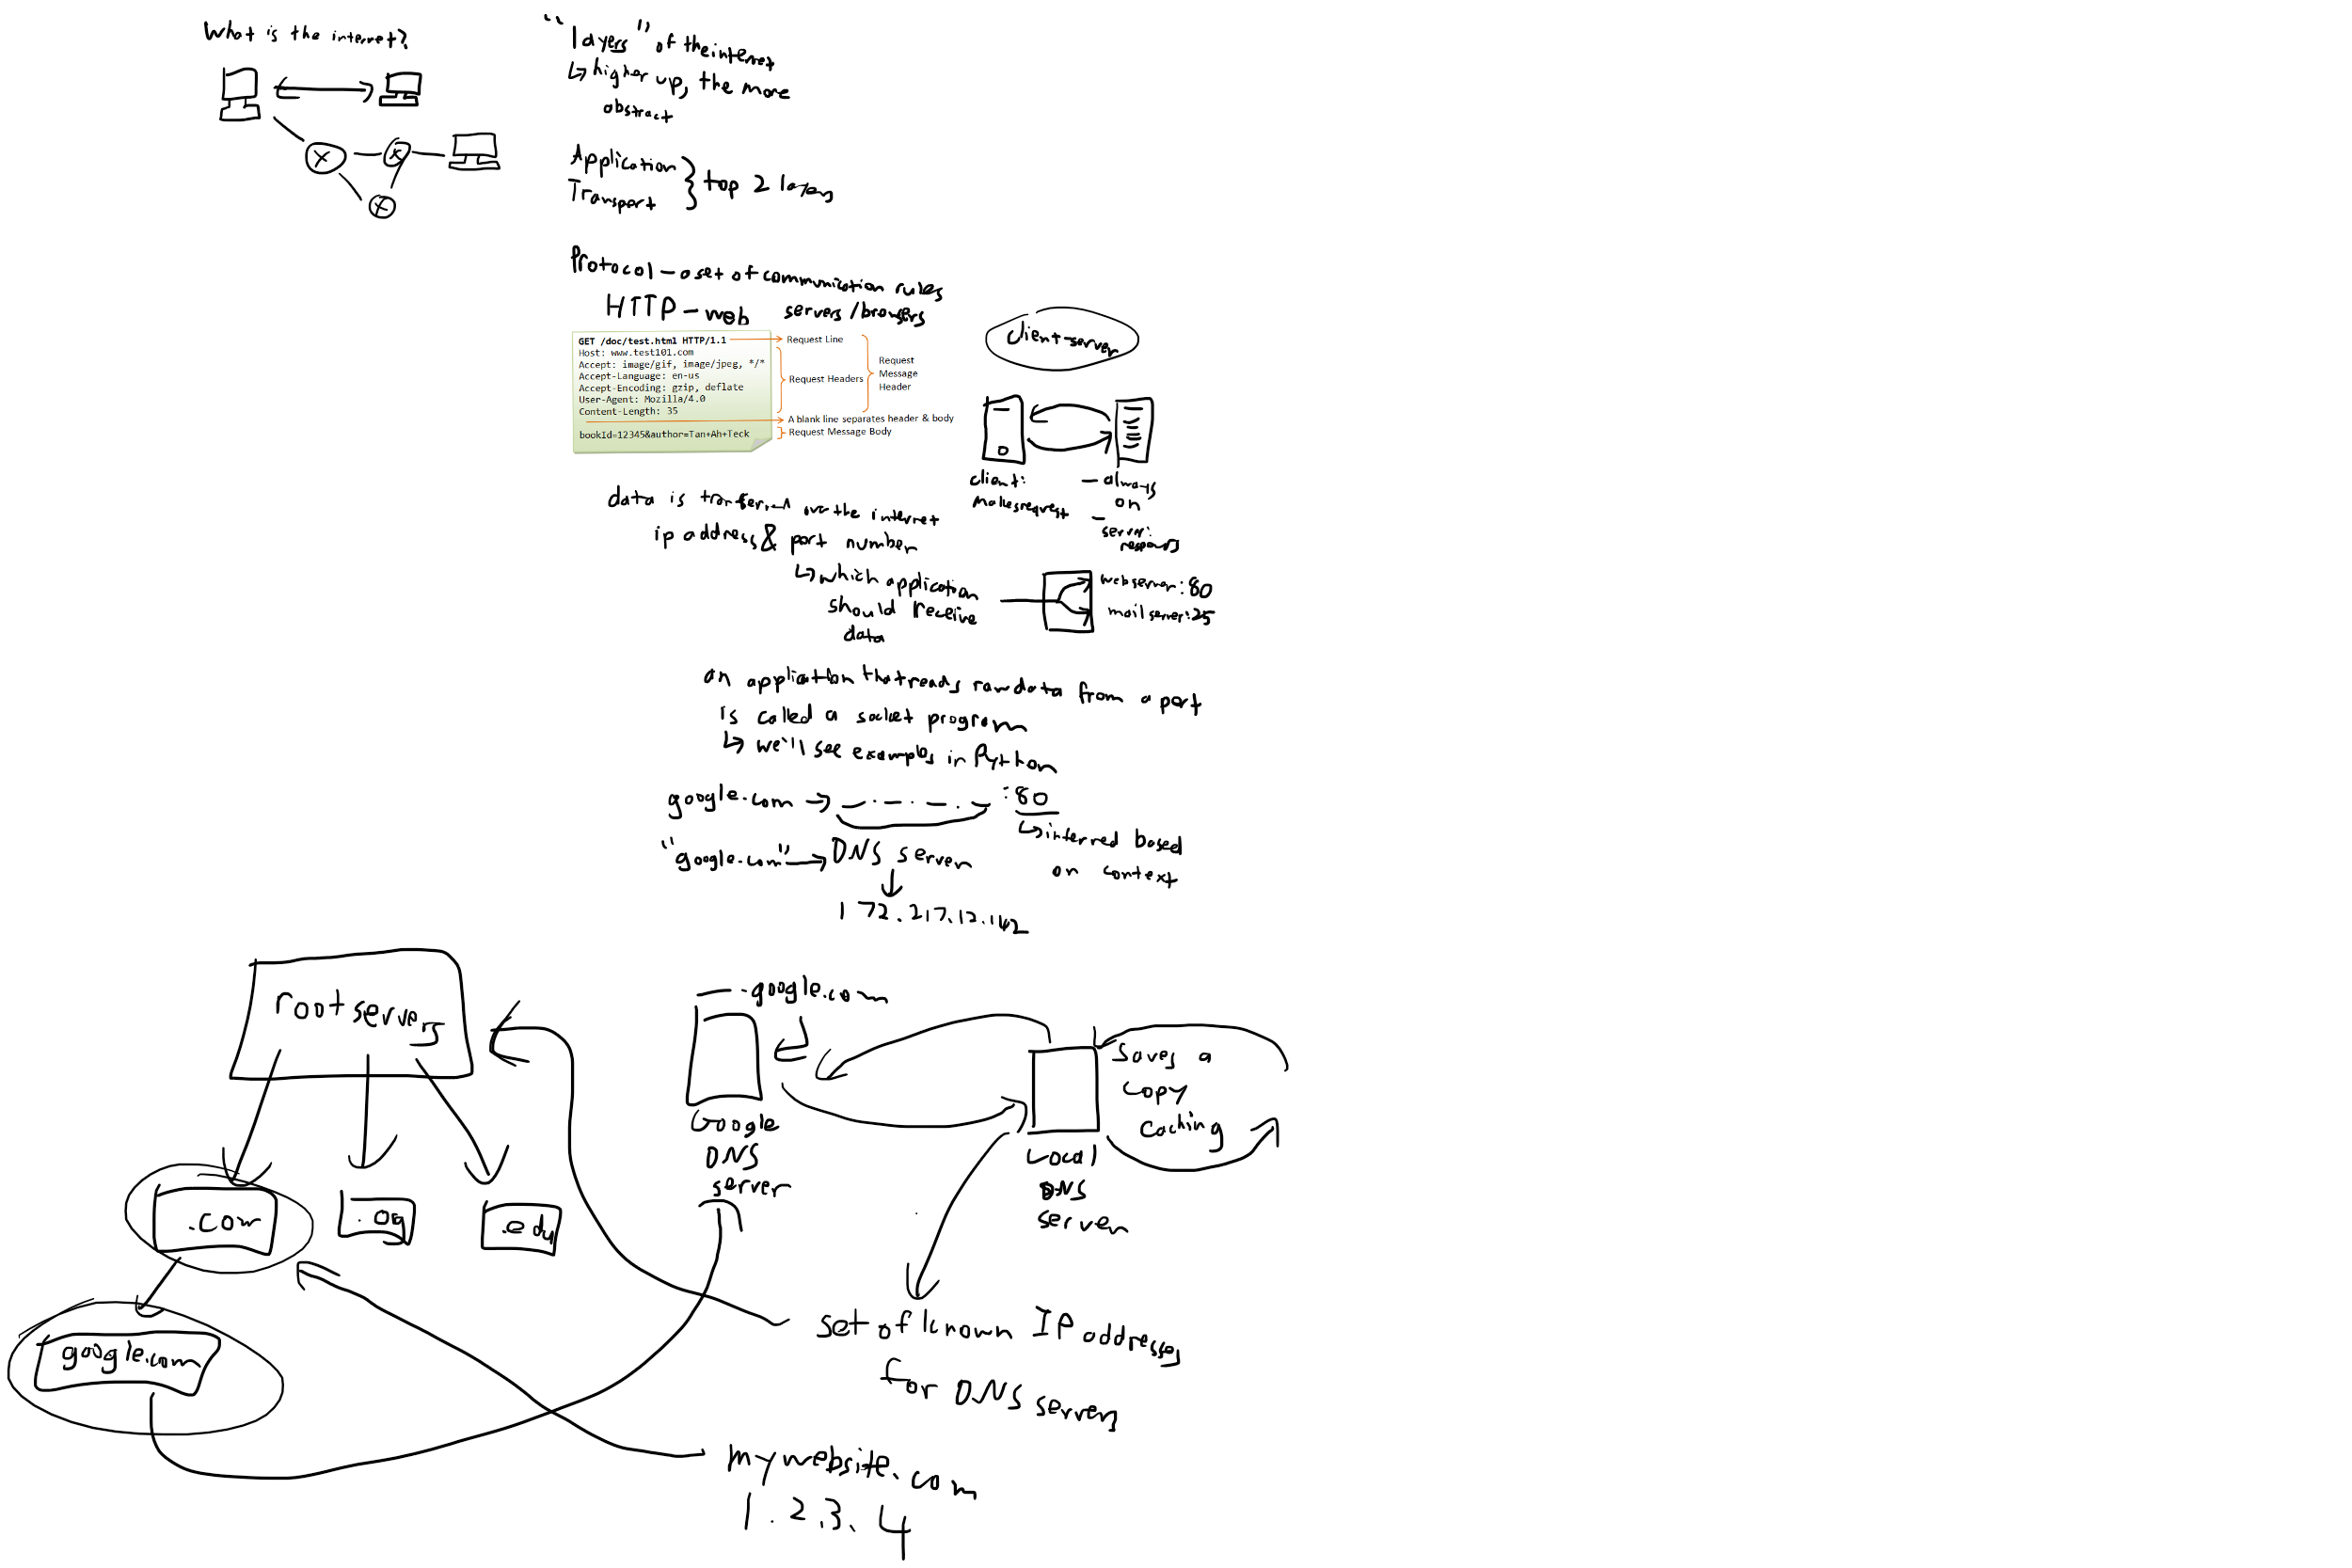 What is the internet?
"layers" of the internet
↳ higher up, the more
abstract
Application
Transport
top 2 layers
Protocol - a set of communication rules
HTTP - web servers/browsers
GET /doc/test.html HTTP/1.1
Host: www.test101.com
Accept: image/gif, image/jpeg, */*
Accept-Language: en-us
Accept-Encoding: gzip, deflate
User-Agent: Mozilla/4.0
Content-Length: 35
bookId=12345&author=Tan+Ah+Teck
Request Line
Request Headers
Request
Message
Header
A blank line separates header & body
Request Message Body
client-server
client:
makes request
- always
on
- server:
responds
data is transferred over the internet
ip address & port number
↳ which application
should receive
data
web server: 80
mail server: 25
an application that reads raw data from a port
is called a socket program
↳ we'll see examples in Python
google.com → _._._._ :80
↳ inferred based
on context
"google.com" → DNS server
172.217.12.142
root servers
.com
.org
.edu
google.com
_.google.com
Google
DNS
server
Local
DNS
server
saves a
copy
caching
set of known IP addresses
for DNS servers
mywebsite.com
1.2.3.4